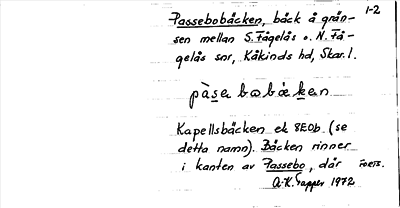 1-2
Passebobäcken, bäck å grän-
sen mellan S. Fågelås o. N. Få-
gelås snr, Kåkinds hd, Skar. l.
pàsabobäkan
Kapellsbäcken ek 8E0b. (se
detta namn). Bäcken rinner
i kanten av Passebo, där FORTS.
A-K. Tapper 1972